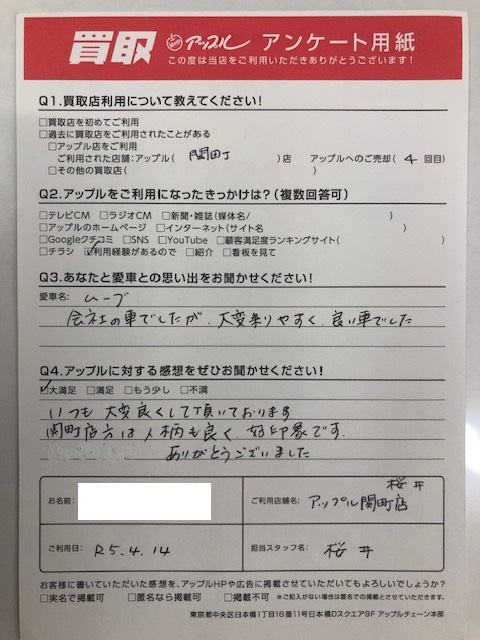 買取 アップル アンケート用紙
この度は当店をご利用いただきありがとうございます!
Q1.買取店利用について教えてください!
□買取店を初めてご利用
□過去に買取店をご利用されたことがある
□アップル店をご利用
ご利用された店舗:アップル( 関町 )店 アップルへのご売却( 4 回目)
□その他の買取店( )
Q2.アップルをご利用になったきっかけは?(複数回答可)
□テレビCM □ラジオCM □新聞・雑誌(媒体名/ )
□アップルのホームページ □インターネット(サイト名 )
□Googleクチコミ □SNS □YouTube □顧客満足度ランキングサイト( )
□チラシ ☑利用経験があるので □紹介 □看板を見て
Q3.あなたと愛車との思い出をお聞かせください!
愛車名: ムーブ
会社の車でしたが、大変乗りやすく、良い車でした
Q4.アップルに対する感想をぜひお聞かせください!
☑大満足 □満足 □もう少し □不満
いつも 大変良くして頂いております
関町店方は人柄も良く、好印象です.
ありがとうございました
お名前:
ご利用店舗名: アップル関町店 桜井
ご利用日: R5.4.14
担当スタッフ名: 桜井
お客様に書いていただいた感想を、アップルHPや広告に掲載させていただいてもよろしいでしょうか?
□実名で掲載可 □匿名なら掲載可 □掲載不可 ※ご記入がない場合は匿名での掲載とさせていただきます。
東京都中央区日本橋1丁目16番11号日本橋Dスクエア9F アップルチェーン本部